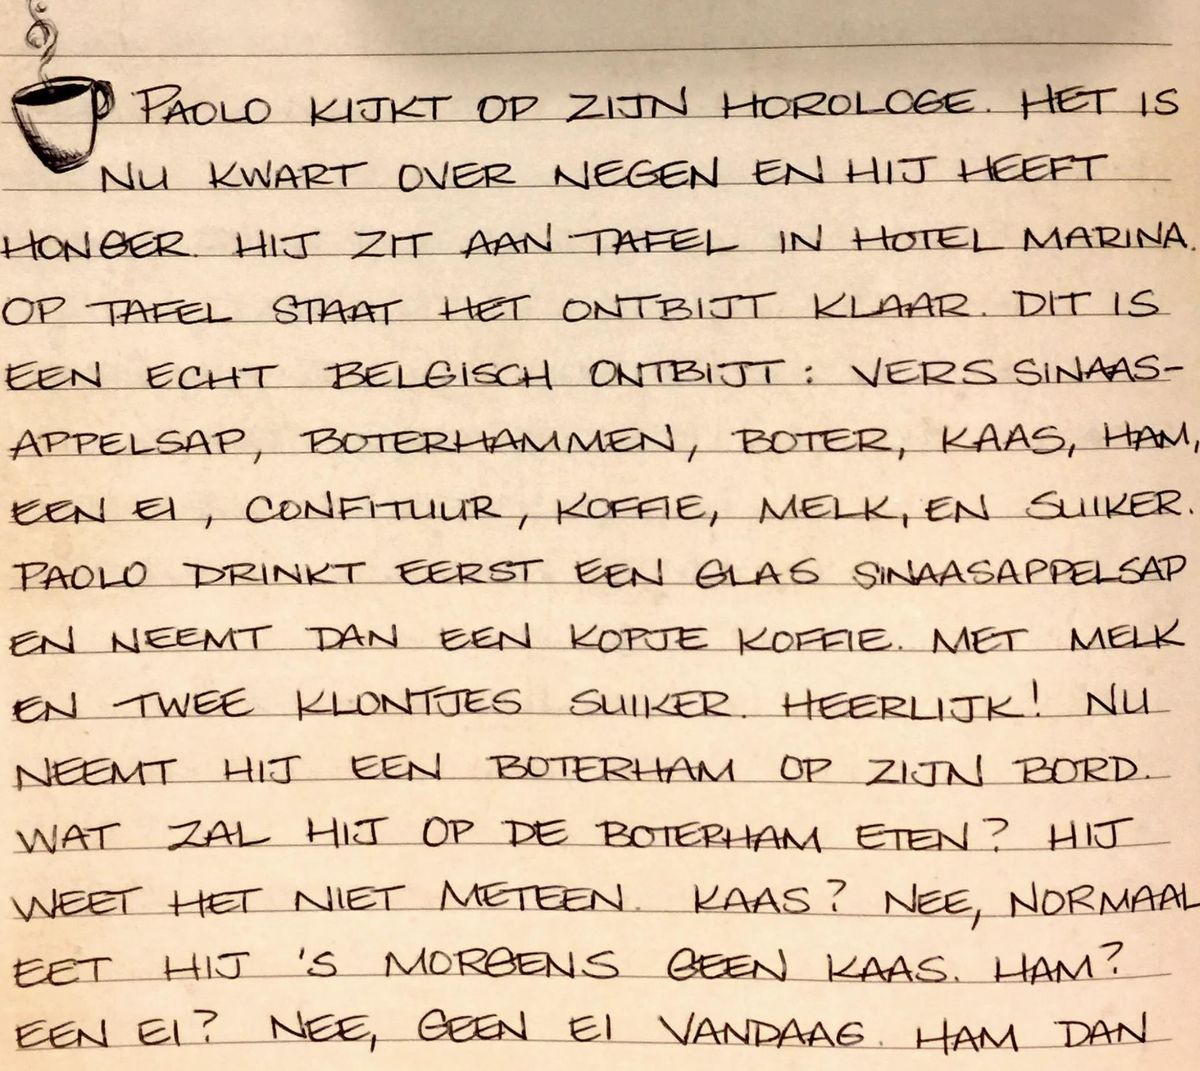 PAOLO KIJKT OP ZIJN HOROLOGE. HET IS
NU KWART OVER NEGEN EN HIJ HEEFT
HONGER. HIJ ZIT AAN TAFEL IN HOTEL MARINA.
OP TAFEL STAAT HET ONTBIJT KLAAR. DIT IS
EEN ECHT BELGISCH ONTBIJT: VERS SINAAS-
APPELSAP, BOTERHAMMEN, BOTER, KAAS, HAM,
EEN EI, CONFITUUR, KOFFIE, MELK, EN SUIKER.
PAOLO DRINKT EERST EEN GLAS SINAASAPPELSAP
EN NEEMT DAN EEN KOPJE KOFFIE. MET MELK
EN TWEE KLONTJES SUIKER. HEERLIJK! NU
NEEMT HIJ EEN BOTERHAM OP ZIJN BORD.
WAT ZAL HIJ OP DE BOTERHAM ETEN? HIJ
WEET HET NIET METEEN. KAAS? NEE, NORMAAL
EET HIJ 'S MORGENS GEEN KAAS. HAM?
EEN EI? NEE, GEEN EI VANDAAG. HAM DAN